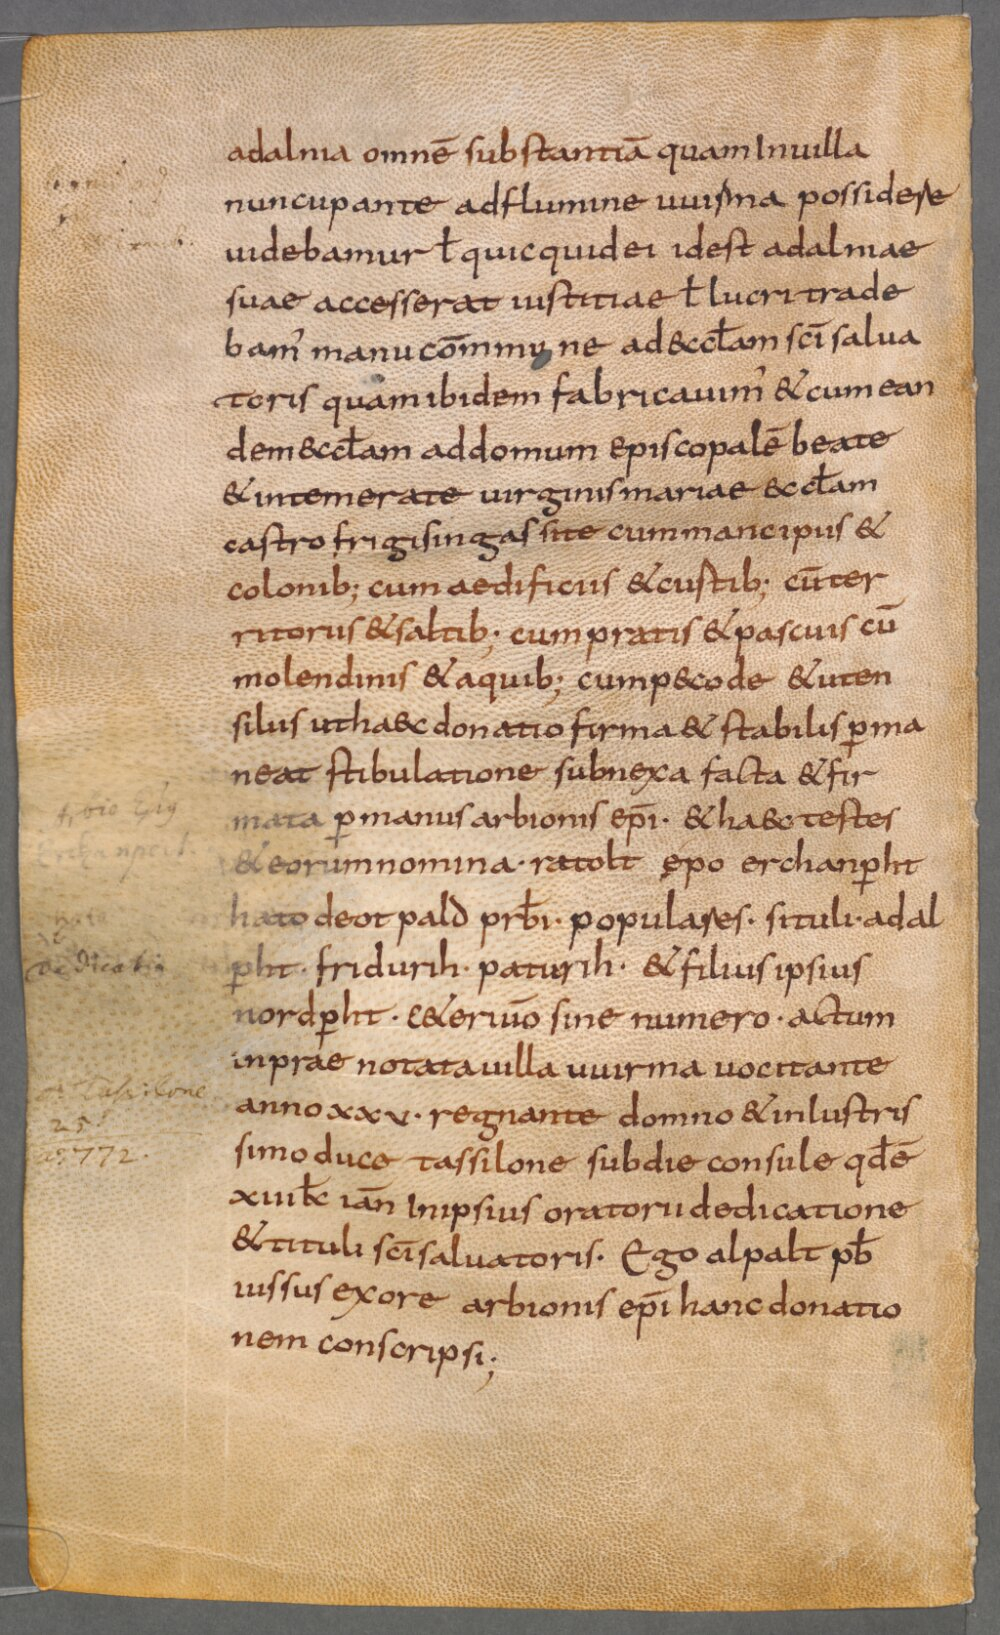 adalnia omnē substantiā quam Inuilla
nuncupante adflumine uuisma possidere
uidebamur ł quicquid ei id est adalniae
suae accesserat iustitiae ł lucri trade
bam᾽ manu cōmmune ad eccłam scī salua
toris quam ibidem fabricauim᾽ & cum ean
dem eccłam addomum episcopalē beate
& intemerate uirginis mariae eccłam
castro frigisingas site cum mancipiis &
colonib; cum aedificiis & custib; cū ter
ritoriis & saltib; cum pratis & pascuis cū
molendinis & aquib; cum p&code & uten
siliis ut haec donatio firma & stabilis ꝑma
neat stibulatione subnexa facta & fir
mata ꝑ manus arbionis ep̄i · & ha&c testes
& eorum nomina · ratolt epo erchanꝑht
hato deotpald prb̄i · populares · situli · adal
ꝑht · fridurih · paturih · & filius ipsius
nordꝑht · c&eriūo sine numero · actum
in prae notata uilla uuirma uocitante
anno xxv · regnante domno & inlustris
simo duce tassilone sub die consule qđē
xiiii kł iān In ipsius oratorii dedicatione
& tituli scī saluatoris · Ego alpalt pb̄
iussus exore arbionis ep̄i hanc donatio
nem conscripsi;
dedicatio
Tassilone
25
772.